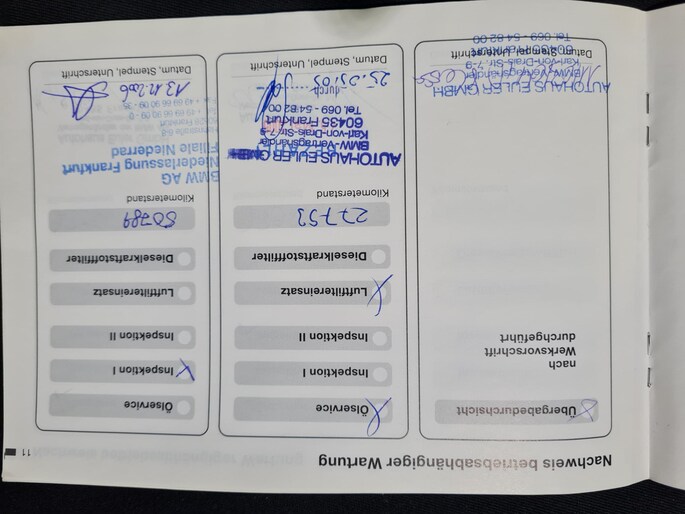 Nachweis betriebsabhängiger Wartung
11
Übergabedurchsicht
nach
Werksvorschrift
durchgeführt
AUTOHAUS EULER GMBH
BMW-Vertragshändler
Karl-von-Drais-Str. 7-9
60435 Frankfurt
Tel. 069 - 54 82 00
Datum, Stempel, Unterschrift
Ölservice
Inspektion I
Inspektion II
Luftfiltereinsatz
Dieselkraftstofffilter
Kilometerstand
AUTOHAUS EULER GMBH
BMW-Vertragshändler
Karl-von-Drais-Str. 7-9
60435 Frankfurt
Tel. 069 - 54 82 00
Datum, Stempel, Unterschrift
Ölservice
Inspektion I
Inspektion II
Luftfiltereinsatz
Dieselkraftstofffilter
50789
Kilometerstand
BMW AG
Niederlassung Frankfurt
Filiale Niederrad
Datum, Stempel, Unterschrift